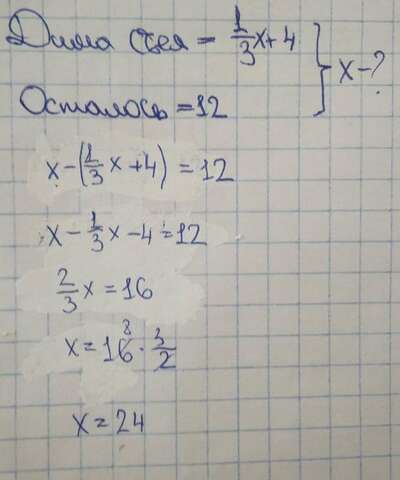 Дима съел = 1/3x+4 } x-?
Осталось = 12
x-(1/3x+4)=12
x-1/3x-4=12
2/3x=16
x=16⁸·3/2
x=24